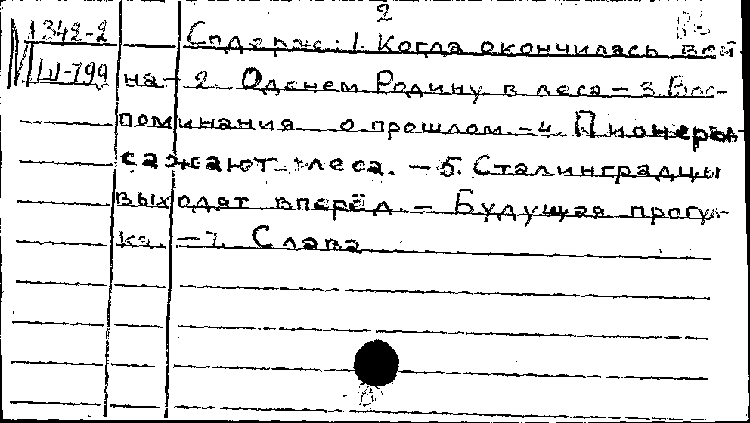 2
М 342-2
Ш-799
Содерж: 1. Когда окончилась вой-
на - 2. Оденем Родину в леса - 3. Вос-
поминания о прошлом - 4. Пионеры
сажают леса. - 5. Сталинградцы
выходят вперёд. - Будущая прогул-
ка. - 7. Слава